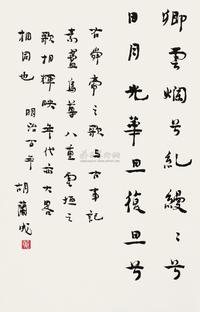 卿雲爛兮糺縵々兮
日月光華旦復旦兮
古舜帝之歌与古事記
素盞烏尊八重雲垣之
歌相輝映年代亦大略
相同也
明治百年
胡蘭成